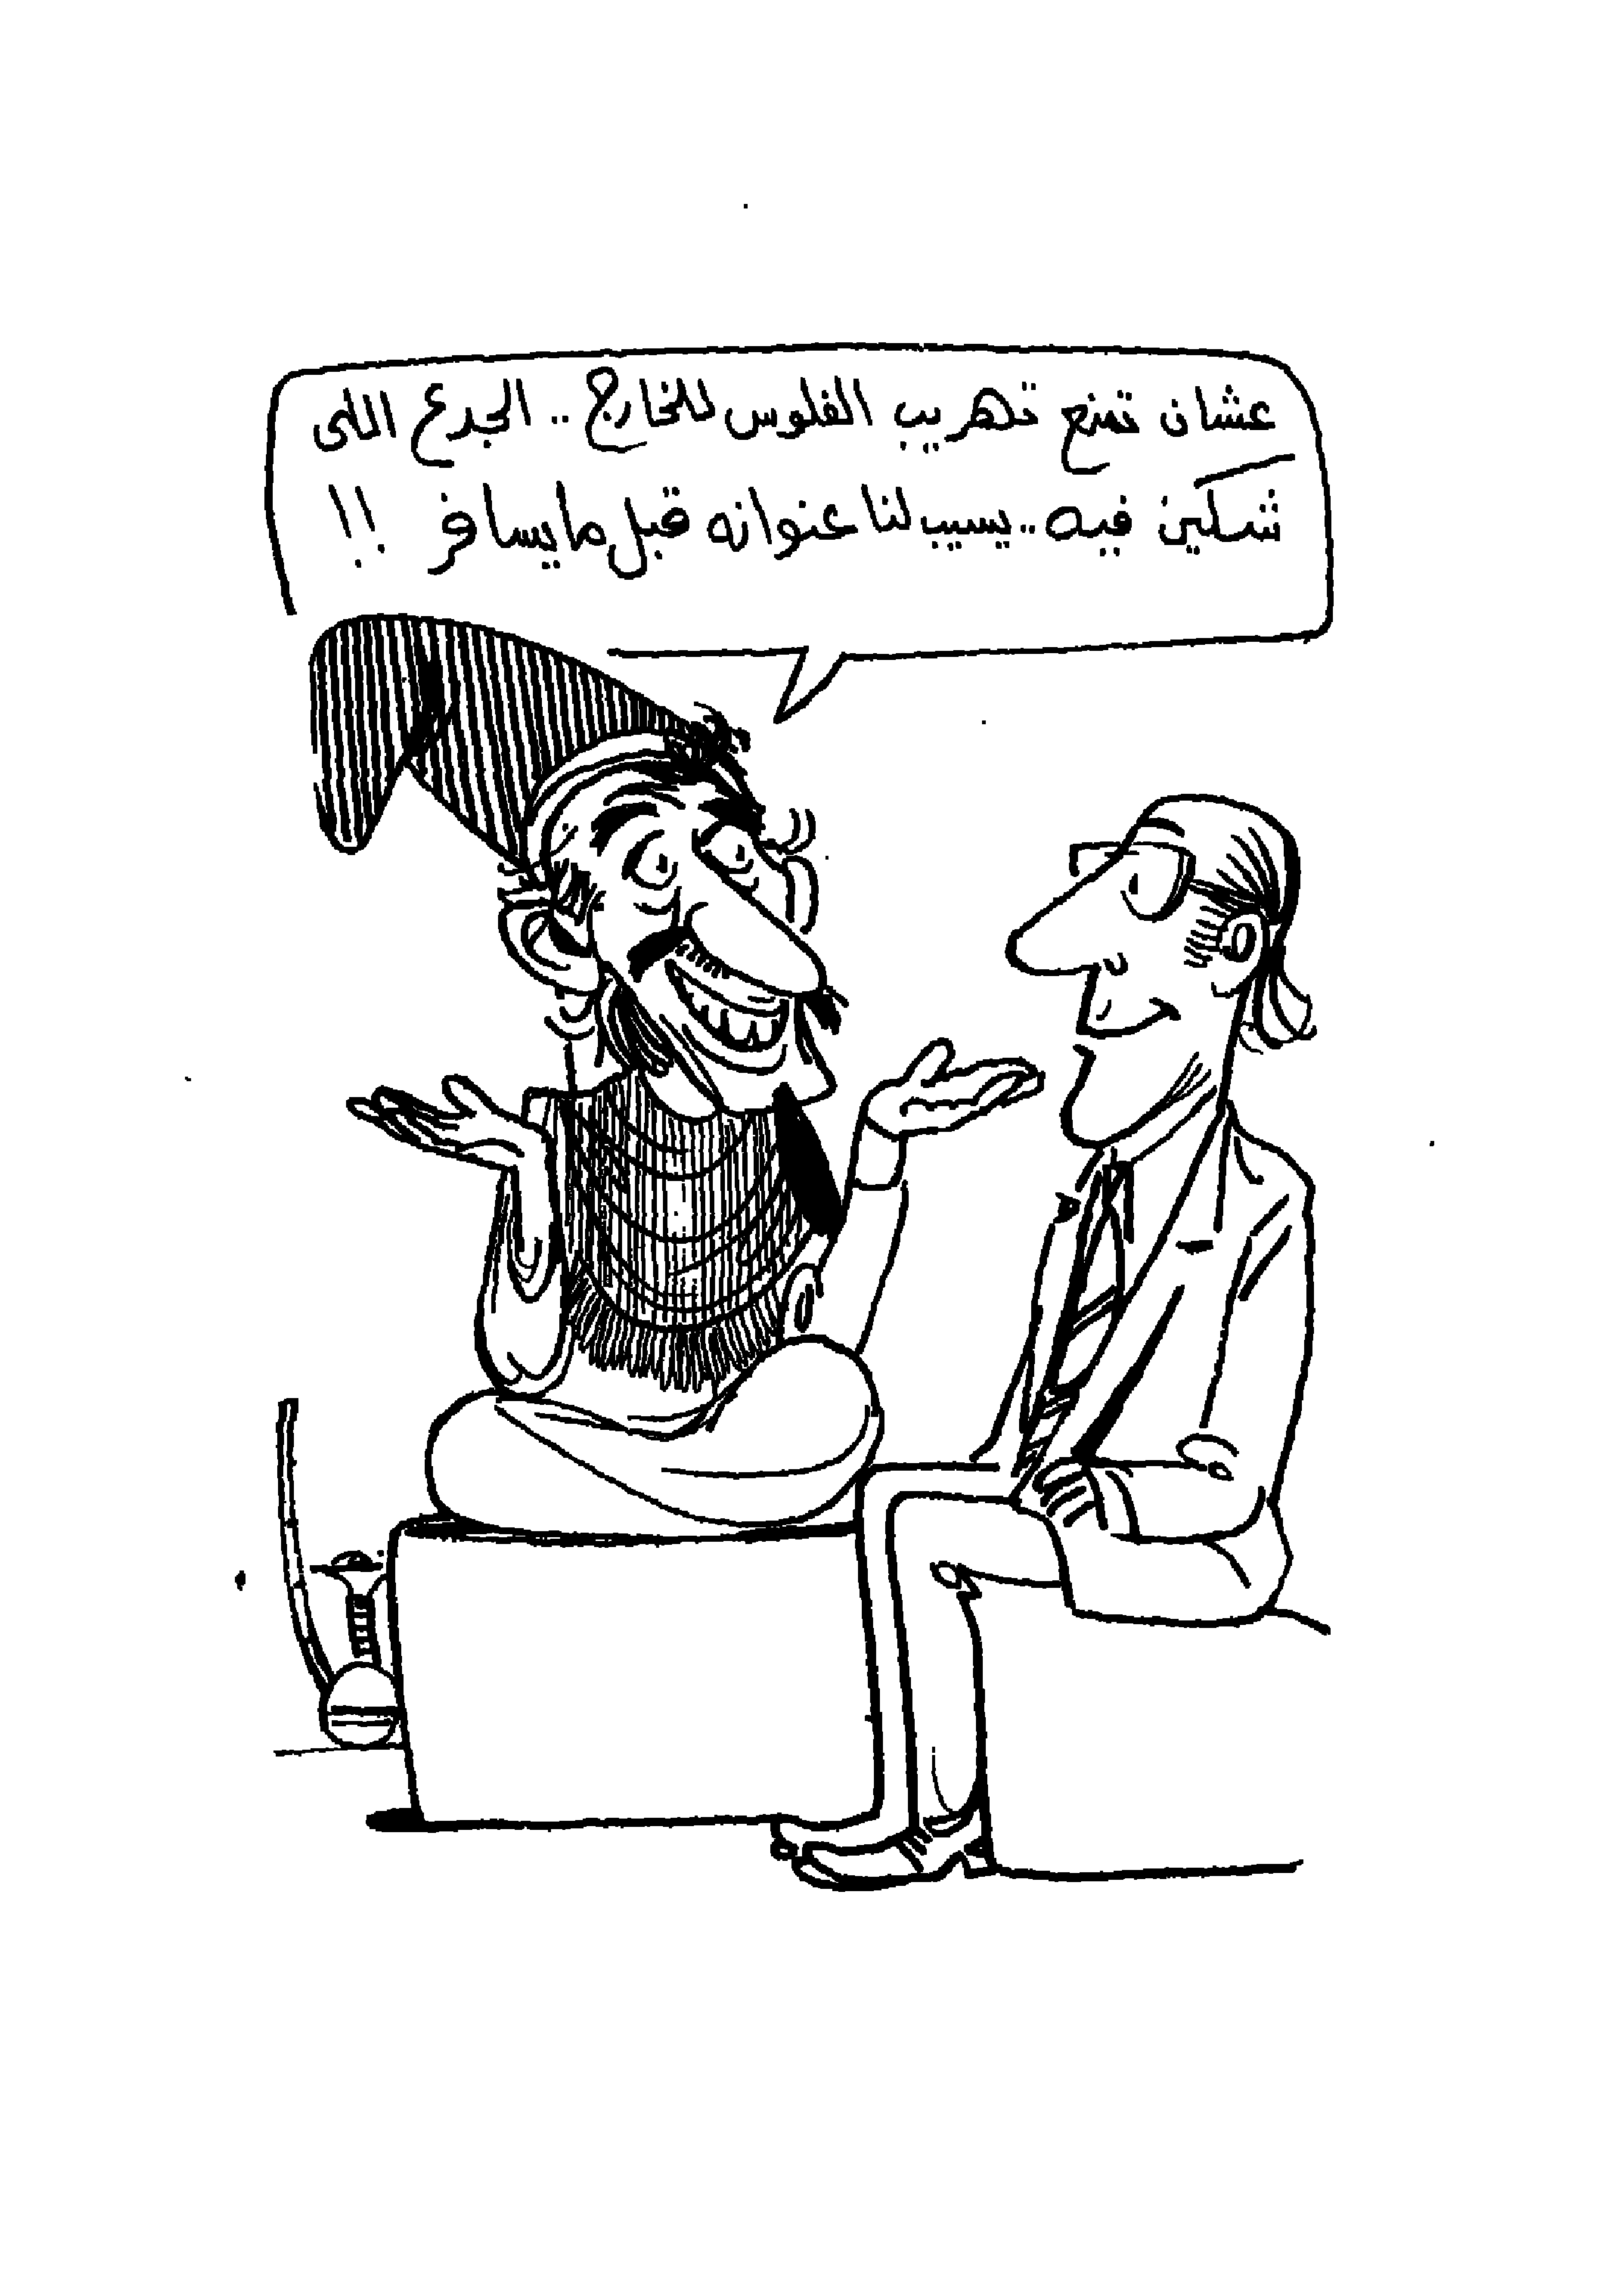 عشان تمنع تهريب الفلوس للخارج .. الجدع اللى
شكين فيه .. يسيب لنا عنوانه قبل ما يسافر !!